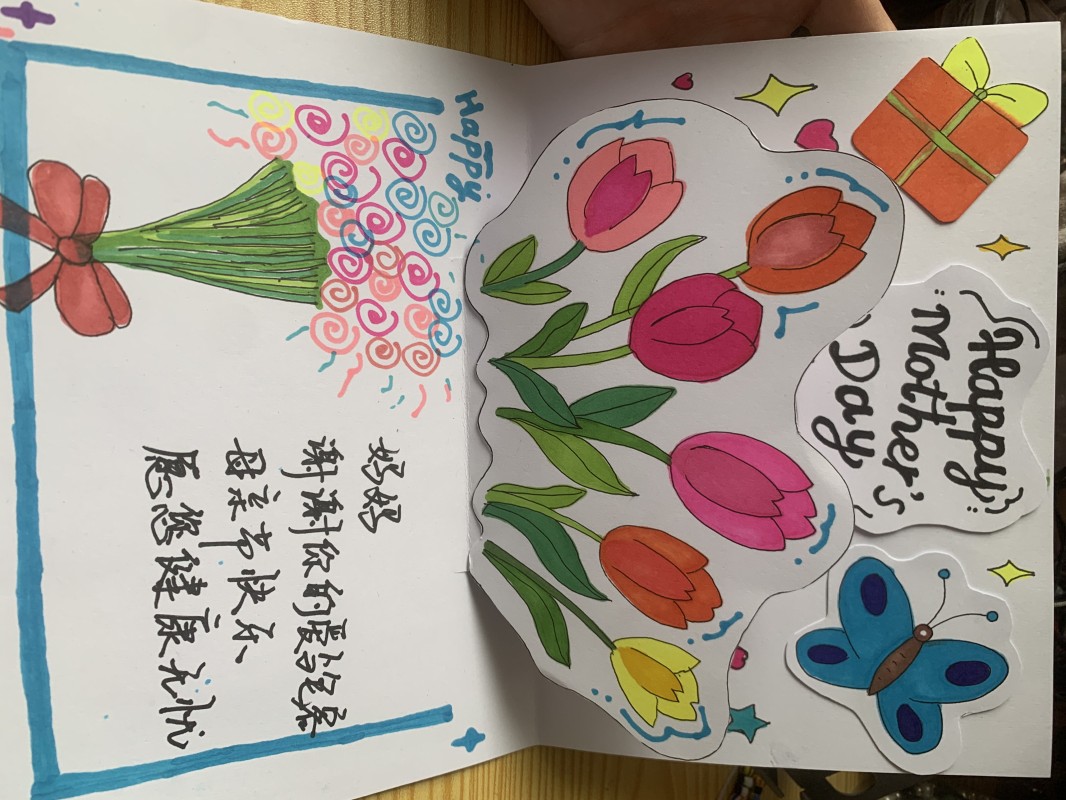 Happy
Mother's
Day
Happy
妈妈
谢谢你的爱与包容
母亲节快乐
愿您健康无忧